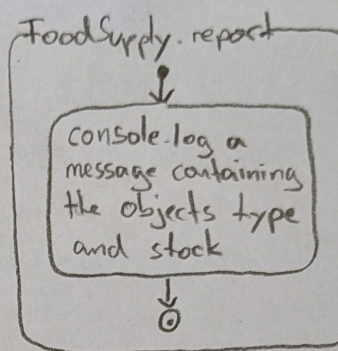 FoodSupply.report
console.log a
message containing
the objects type
and stock